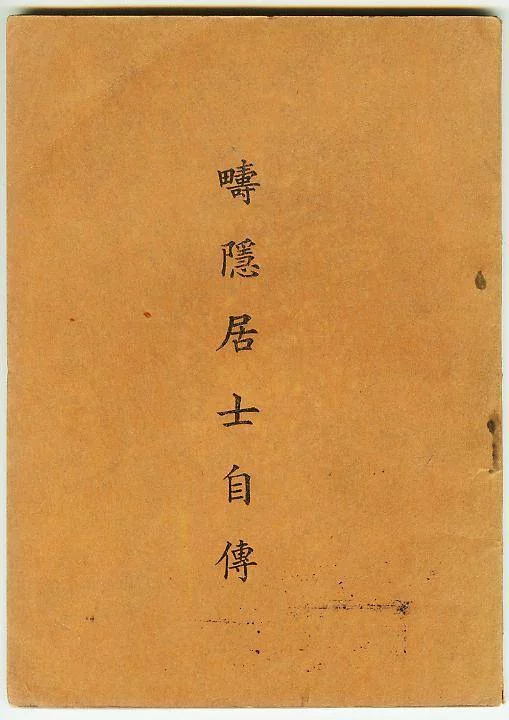 疇隱居士自傳